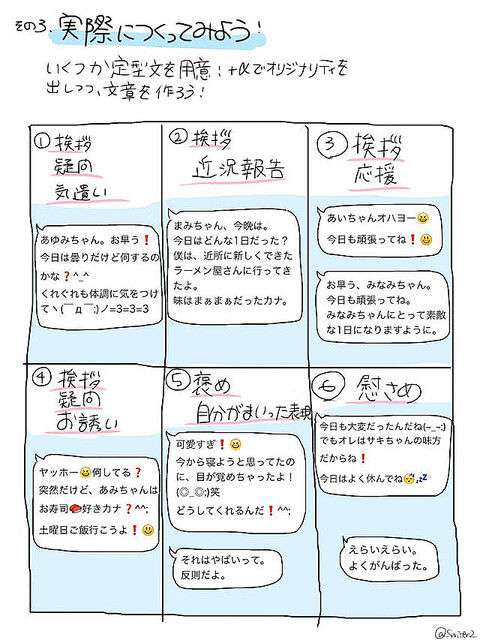 その3. 実際につくってみよう!
いくつか定型文を用意!+αでオリジナリティを
出しつつ、文章を作ろう!
① 挨拶
疑問
気遣い
あゆみちゃん。お早う❗
今日は曇りだけど何するの
かな❓^_^
くれぐれも体調に気をつけ
てヽ(￣д￣;)ノ=3=3=3
② 挨拶
近況報告
まみちゃん、今晩は。
今日はどんな1日だった?
僕は、近所に新しくできた
ラーメン屋さんに行ってき
たよ。
味はまぁまぁだったカナ。
③ 挨拶
応援
あいちゃんオハヨー😀
今日も頑張ってね❗😀
お早う、みなみちゃん。
今日も頑張ってね。
みなみちゃんにとって素敵
な1日になりますように。
④ 挨拶
疑問
お誘い
ヤッホー😀何してる❓
突然だけど、あみちゃんは
お寿司🍣好きカナ❓^^;
土曜日ご飯行こうよ❗😀
⑤ 褒め
自分がまいった表現
可愛すぎ❗😀
今から寝ようと思ってたの
に、目が覚めちゃったよ!
(◎_◎;)笑
どうしてくれるんだ❗^^;
それはやばいって。
反則だよ。
⑥ 慰さめ
今日も大変だったんだね(−_−;)
でもオレはサキちゃんの味方
だからね❗
今日はよく休んでね😴💤
えらいえらい。
よくがんばった。